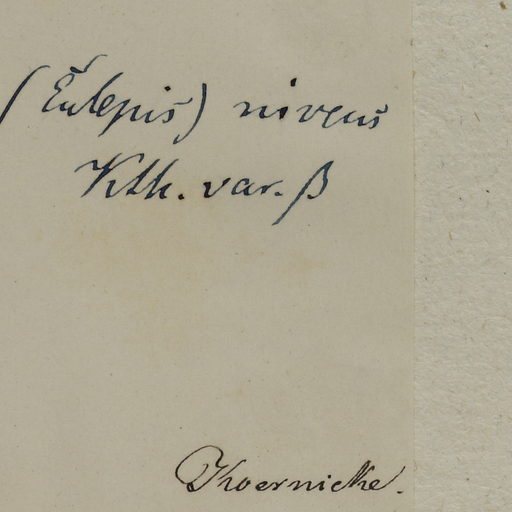 (Eulepis) niveus
Kth. var. β
Koernicke.